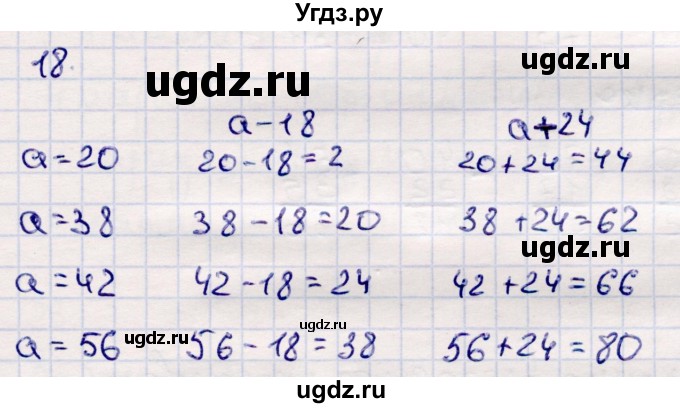 Угдз.ру
18.
ugdz.ru
ugdz.ru
a-18 a+24
a=20 20-18=2 20+24=44
a=38 38-18=20 38+24=62
ugdz.ru
a=42 42-18=24 42+24=66
ugdz.ru ugdz.ru
a=56 56-18=38 56+24=80
ugdz.ru
ugdz.ru